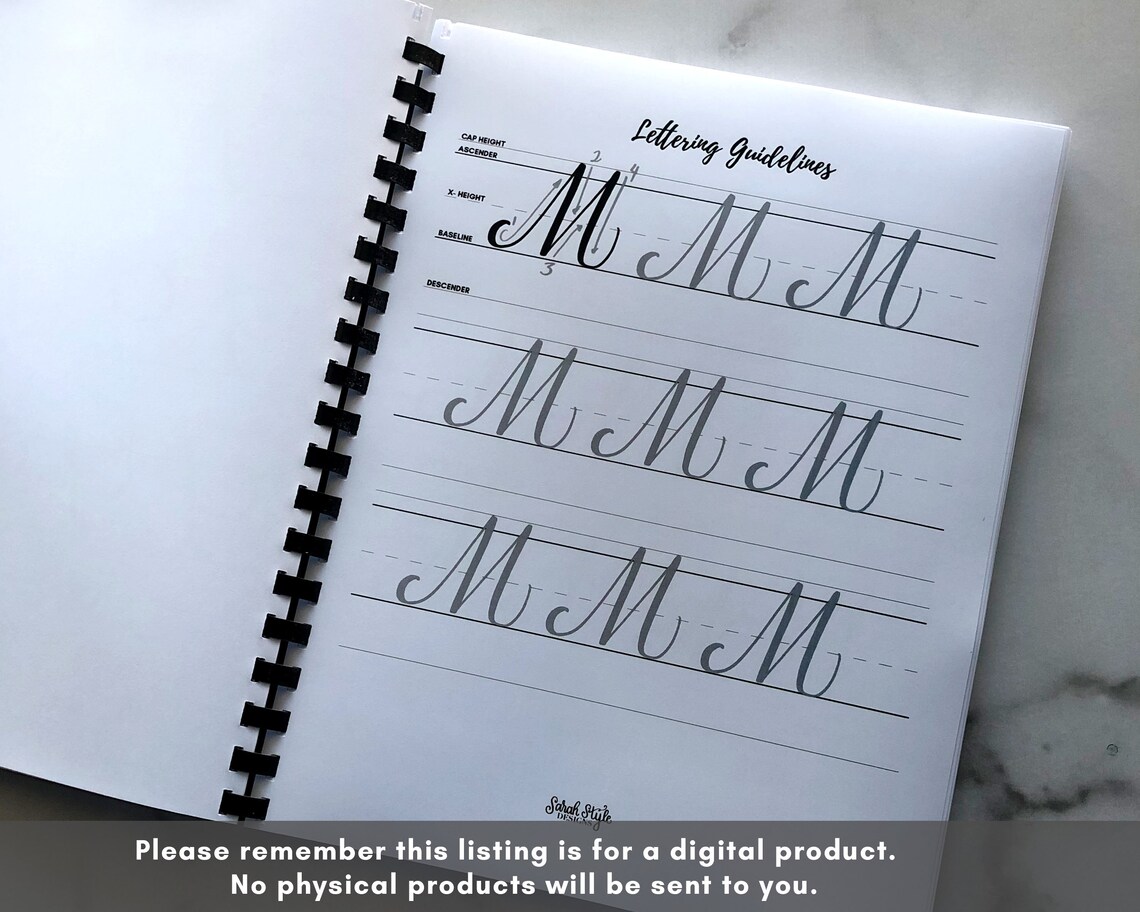 Lettering Guidelines
CAP HEIGHT
ASCENDER
X- HEIGHT
BASELINE
DESCENDER
1 2 3 4
M M M
M M M
M M M
Sarah Style
DESIGNS
Please remember this listing is for a digital product.
No physical products will be sent to you.